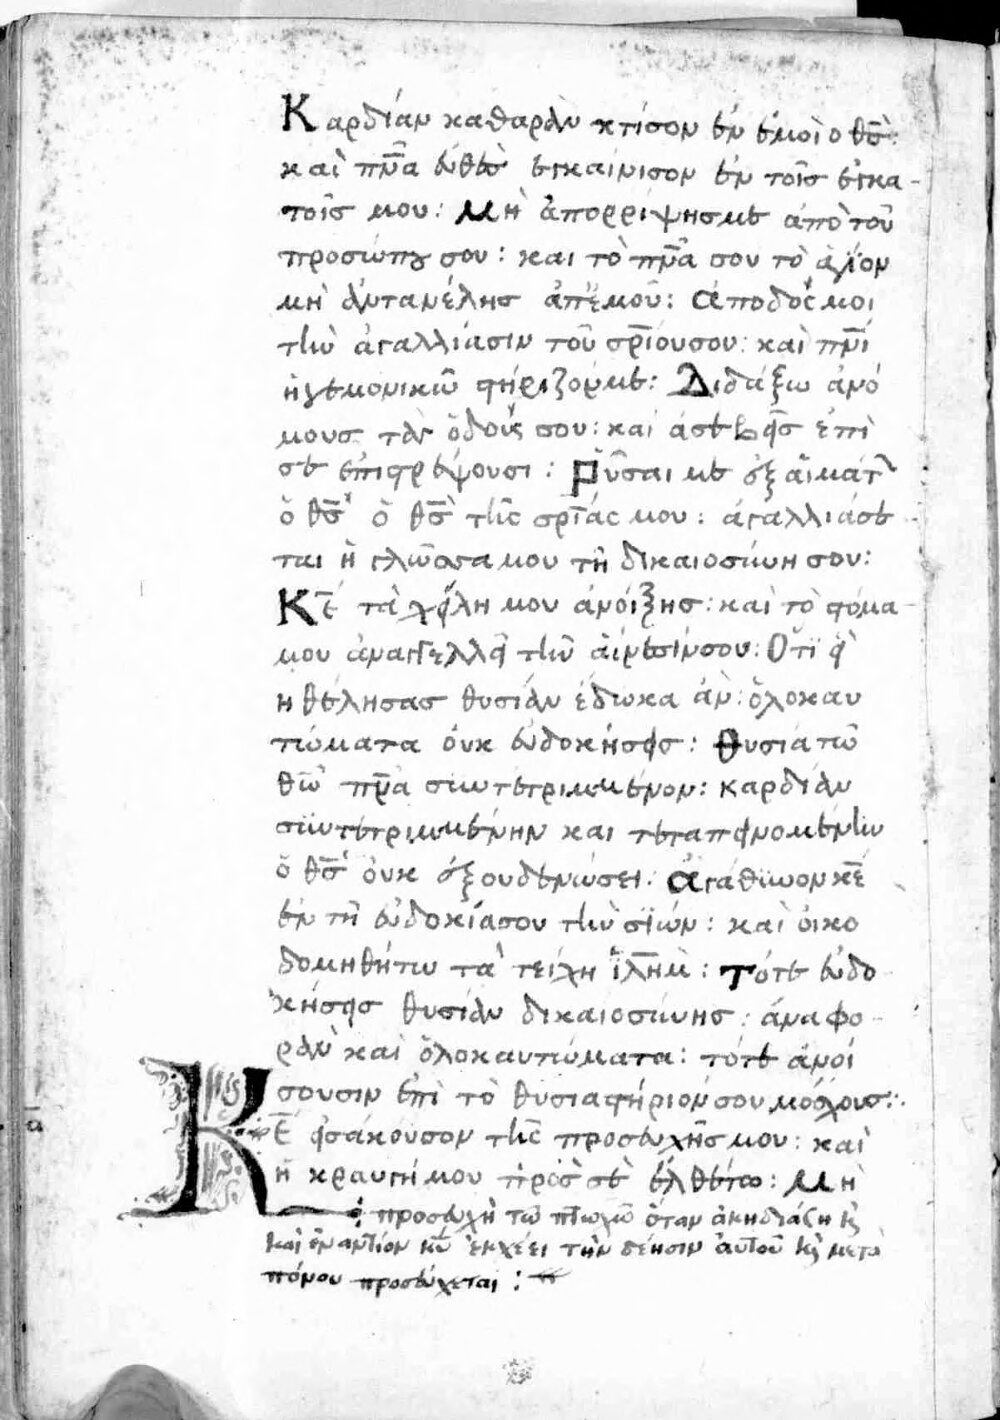 Καρδίαν καθαρὰν κτίσον ἐν ἐμοὶ ὁ θς̅:
καὶ πν̅α εὐθὲς ἐγκαίνισον ἐν τοῖς ἐγκα-
τοῖς μου: Μὴ ἀπορρίψης με ἀπὸ τοῦ
προσώπου σου: καὶ τὸ πν̅α σου τὸ ἅγϊον
μὴ ἀντανέλης ἀπ' ἐμοῦ: Ἀποδός μοι
τὴν ἀγαλλίασιν τοῦ σρ̅ίου σου: καὶ πν̅ι
ἡγεμονικῶ στήριξόν με: Διδάξω ἀνό
μους τὰς ὁδούς σου: καὶ ἀσεβεῖς ἐπὶ
σὲ ἐπιστρέψουσι: Ῥῦσαι με ἐξ αἱμάτ
ὁ θς̅ ὁ θς̅ τῆς σρ̅ίας μου: ἀγαλλιάσε-
ται ἡ γλῶσσα μου τῆ δικαιοσύνη σου:
Κε̅ τὰ χείλη μου ἀνοίξης: καὶ τὸ στόμα-
μου ἀναγγελλεῖ τὴν αἴνεσίν σου: Ὅτϊ εἰ
ἠθέλησας θυσίαν ἔδωκα ἀν: ὁλοκαυ
τώματα οὐκ εὐδοκήσεις: Θυσία τῶ
θῶ̅ πν̅α συντετριμμένον: καρδίαν
συντετριμμένην καὶ τεταπεινομένην
ὁ θς̅ οὐκ ἐξουδενώσει. Ἀγάθϋνον κε̅
ἐν τῆ εὐδοκία σου τὴν σϊών: καὶ οἰκο
δομηθήτω τὰ τείχη ϊλ̅ημ: Τότε εὐδο-
κήσεις θυσίαν δικαιοσύνης: ἀναφο-
ρὰν καὶ ὁλοκαυτώματα: τότε ἀνοί
σουσιν ἐπὶ τὸ θυσιαστήριόν σου μόσχους:.
Κε̅ εἰσάκουσον τῆς προσευχῆς μου: καὶ
ἡ κραυγή μου πρὸς σὲ ἐλθέτω: Μὴ
προσευχὴ τῶ πτωχῶ ὅταν ἀκηδιάση κ̀
καὶ ἐναντίον κυ̅ ἐκχέει τὴν δέησιν αὐτοῦ κ̀ μετὰ
πόνου προσεύχεται: